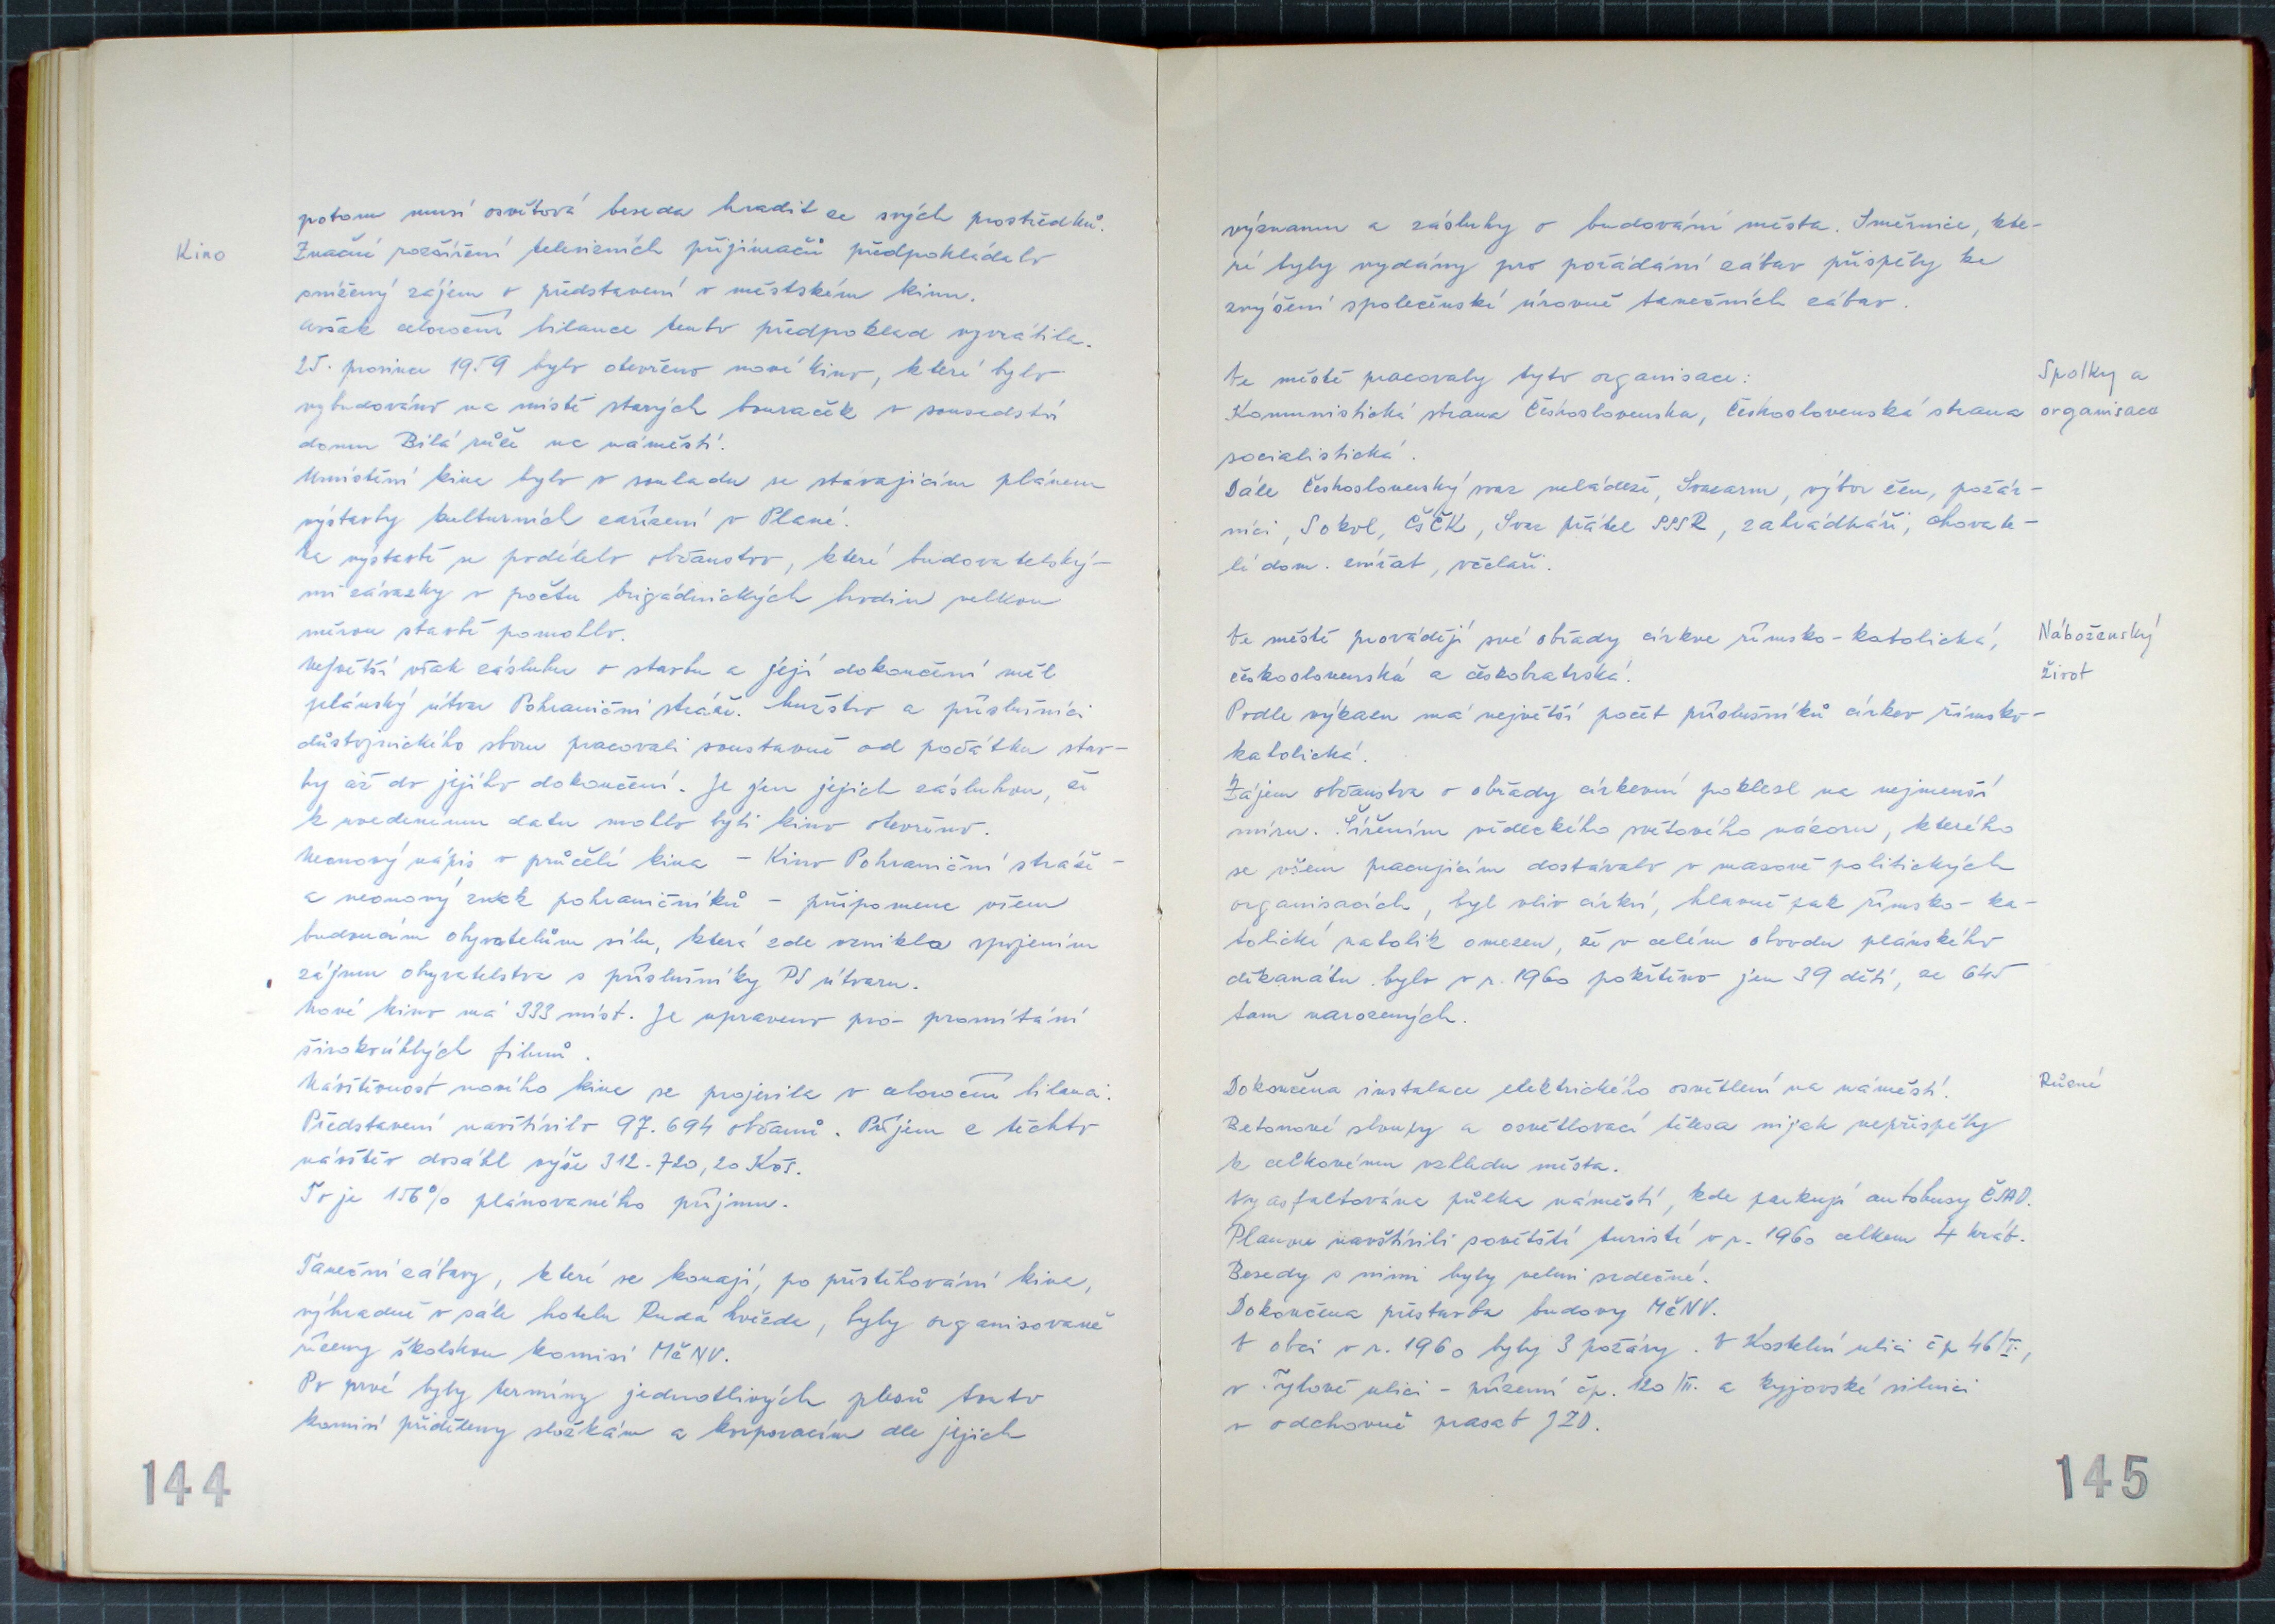 potom musí osvětová beseda hradit ze svých prostředků.
Kino
Značné rozšíření televisních přijímačů předpokládalo
snížený zájem o představení v městském kinu.
Avšak celoroční bilance tento předpoklad vyvrátila.
25. prosince 1959 bylo otevřeno nové kino, které bylo
vybudováno na místě starých bouraček v sousedství
domu Bílá růže na náměstí.
Umístění kina bylo v souladu se stávajícím plánem
výstavby kulturních zařízení v Plané.
Na výstavbě se podílelo občanstvo, které budovatelský-
mi závazky v počtu brigádnických hodin velkou
měrou stavbě pomohlo.
Největší však zásluhu o stavbu a její dokončení měl
plánský útvar Pohraniční stráže. Mužstvo a příslušníci
důstojnického sboru pracovali soustavně od počátku stav-
by až do jejího dokončení. Je jen jejich zásluhou, že
k uvedenému datu mohlo býti kino otevřeno.
Neonový nápis v průčelí kina - Kino Pohraniční stráže -
a neonový znak pohraničníků - připomene všem
budoucím obyvatelům sílu, která zde vznikla spojením
zájmu obyvatelstva s příslušníky PS útvaru.
Nové kino má 333 míst. Je upraveno pro promítání
širokoúhlých filmů.
Návštěvnost nového kina se projevila v celoroční bilanci.
Představení navštívilo 97.694 občanů. Příjem z těchto
návštěv dosáhl výše 312.720,20 Kčs.
To je 156% plánovaného příjmu.
Taneční zábavy, které se konají, po přestěhování kina,
výhradně v sále hotelu Rudá hvězda, byly organisovaně
řízeny školskou komisí MěNV.
Po prvé byly termíny jednotlivých plesů touto
komisí přiděleny složkám a korporacím dle jejich
144
významu a zásluhy o budování města. Směrnice, kte-
ré byly vydány pro pořádání zábav přispěly ke
zvýšení společenské úrovně tanečních zábav.
Ve městě pracovaly tyto organisace:
Spolky a
Komunistická strana Československa, Československá strana
organisace
socialistická.
Dále Československý svaz mládeže, Svazarm, výbor žen, požár-
níci, Sokol, ČSČK, Svaz přátel SSSR, zahrádkáři, chovate-
lé dom. zvířat, včelaři.
Ve městě provádějí své obřady církve římsko-katolická,
Náboženský
československá a českobratrská.
život
Podle výkazu má největší počet příslušníků církev římsko-
katolická.
Zájem občanstva o obřady církevní poklesl na nejmenší
míru. Šířením vědeckého světového názoru, kterého
se všem pracujícím dostávalo v masově politických
organisacích, byl vliv církví, hlavně pak římsko-ka-
tolické natolik omezen, že v celém obvodu plánského
děkanátu bylo v r. 1960 pokřtěno jen 39 dětí, ze 645
tam narozených.
Dokončena instalace elektrického osvětlení na náměstí.
Různé
Betonové sloupy a osvětlovací tělesa nijak nepřispěly
k celkovému vzhledu města.
Vyasfaltována půlka náměstí, kde parkují autobusy ČSAD.
Planou navštívili sovětští turisté v r. 1960 celkem 4 krát.
Besedy s nimi byly velmi srdečné.
Dokončena přístavba budovy MěNV.
V obci v r. 1960 byly 3 požáry. V Kostelní ulici čp 46/I.,
v Tylově ulici - přízemí čp. 120/II. a Kyjovské silnici
v odchovně prasat JZD.
145